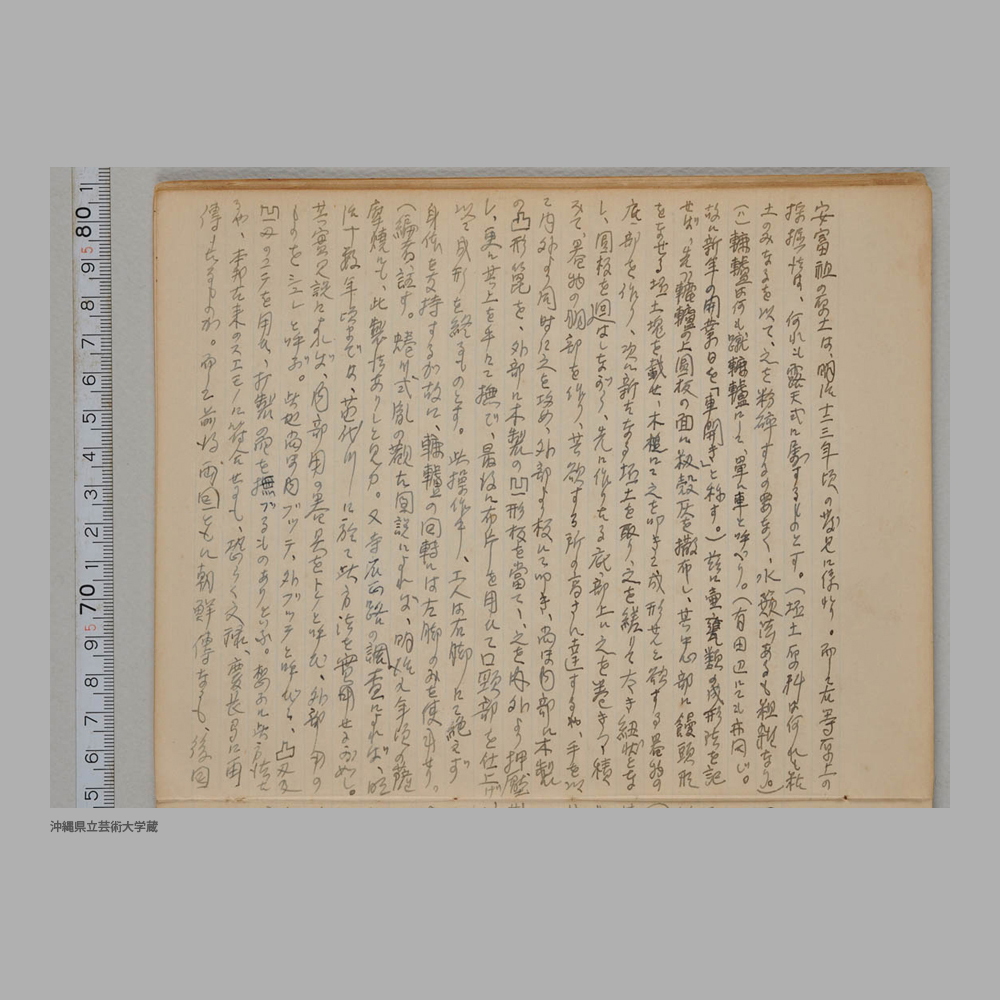 安富祖の原土は、明治十三年頃の発見に係る。而して右等原土の
採掘法は、何れも露天式に属するものとす。(坯土原料は何れも粘
土のみなるを以て、之を粉碎するの要なく、水簸法あるも粗雑なり。)
(二)轆轤は何れも蹴轆轤にして、單に車と呼べり。(有田辺にても亦同じ。
故に新年の開業日を「車開き」と称す。)茲に壷甕類の成形法を記
せば、先づ轆轤の上圓板の面に籾殻灰を撒布し、其中心部に饅頭形
をなせる坯土塊を載せ、木槌にて之を叩き、成形せんと欲する器物の
底部を作り、次に新たなる坯土を取り、之を縒りて太き紐状とな
し、圓板を廻はしながら、先に作りたる底部上に之を巻きつゝ積
みて、器物の胴部を作り、其欲する所の高さに達するや、手を以
て内外より同時に之を攻め、外部より板にて叩き、尚ほ内部に木製
の凸形篦を、外部に木製の凹形板を當て、之を内外より押壓
し、更に其上を手にて撫で、最後に布片を用ひて口頸部を仕上げ
以て成形を終るものとす。此操作中、工人は右脚にて絶えず
身体を支持するが故に、轆轤の回轉には左脚のみを使用せり。
(編者註す。蜷川式胤の観古図説によれば、明治元年頃の薩
摩焼にも、此製法ありしと見ゆ。又寺辰三路の調査によれば、明
治十数年頃までは、苗代川に於て此方法を實用せる如し。
其實見説によれば、内部用の器具をトンと呼び、外部用の
ものをシュレと呼ぶ。此他尚ほ内ブッテ、外ブッテと呼び、凸又
凹又のコテを用ひ、打製器を撫づるものありといふ。
や、本邦在来のスエモノに符合せるも、恐らく文禄、慶長身に再
傳せるものか。而して前後両回ともに朝鮮傳なるも、後回
80 1
9 5 8 7 6 5 4 3 2 1
70
9 5 8 7 6 5
沖縄県立芸術大学蔵